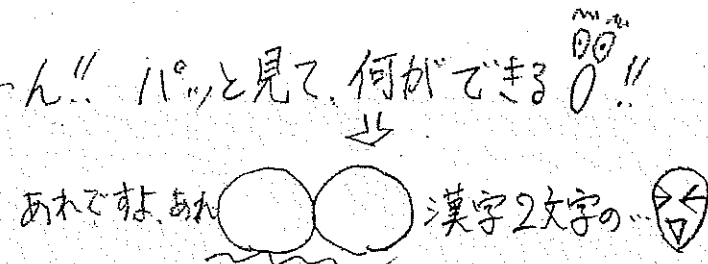 ん!! パッと見て、何ができる!!
あれですよ、あれ 漢字2文字の…